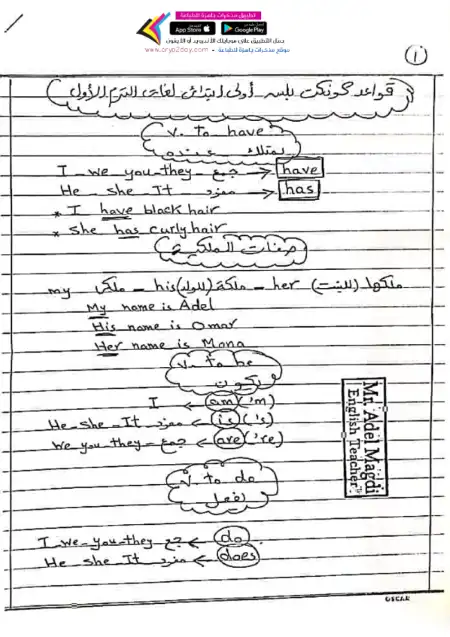 تطبيق مذكرات جاهزة للطباعة
Available on the App Store
GET IT ON Google Play
حمل التطبيق على موبايلك الأندرويد أو الآيفون
www.cryp2day.com موقع مذكرات جاهزة للطباعة
١
قواعد كونكت بلس أولى ابتدائى لغات الترم الأول
v. to have
يمتلك عنده
I - we - you - they - جمع → have
He - she - It مفرد → has
* I have black hair
* she has curly hair
صفات الملكية
my ملكى - his ملكة (للولد) - her ملكها (للبنت)
My name is Adel
His name is Omar
Her name is Mona
v. to be
يكون
I ← am ('m)
He - she - It مفرد ← is ('s)
We you they - جمع ← are ('re)
Mr. Adel Magdi
English Teacher
v. to do
يفعل
I - we - you - they جمع ← do
He she It مفرد ← does
OSCAR